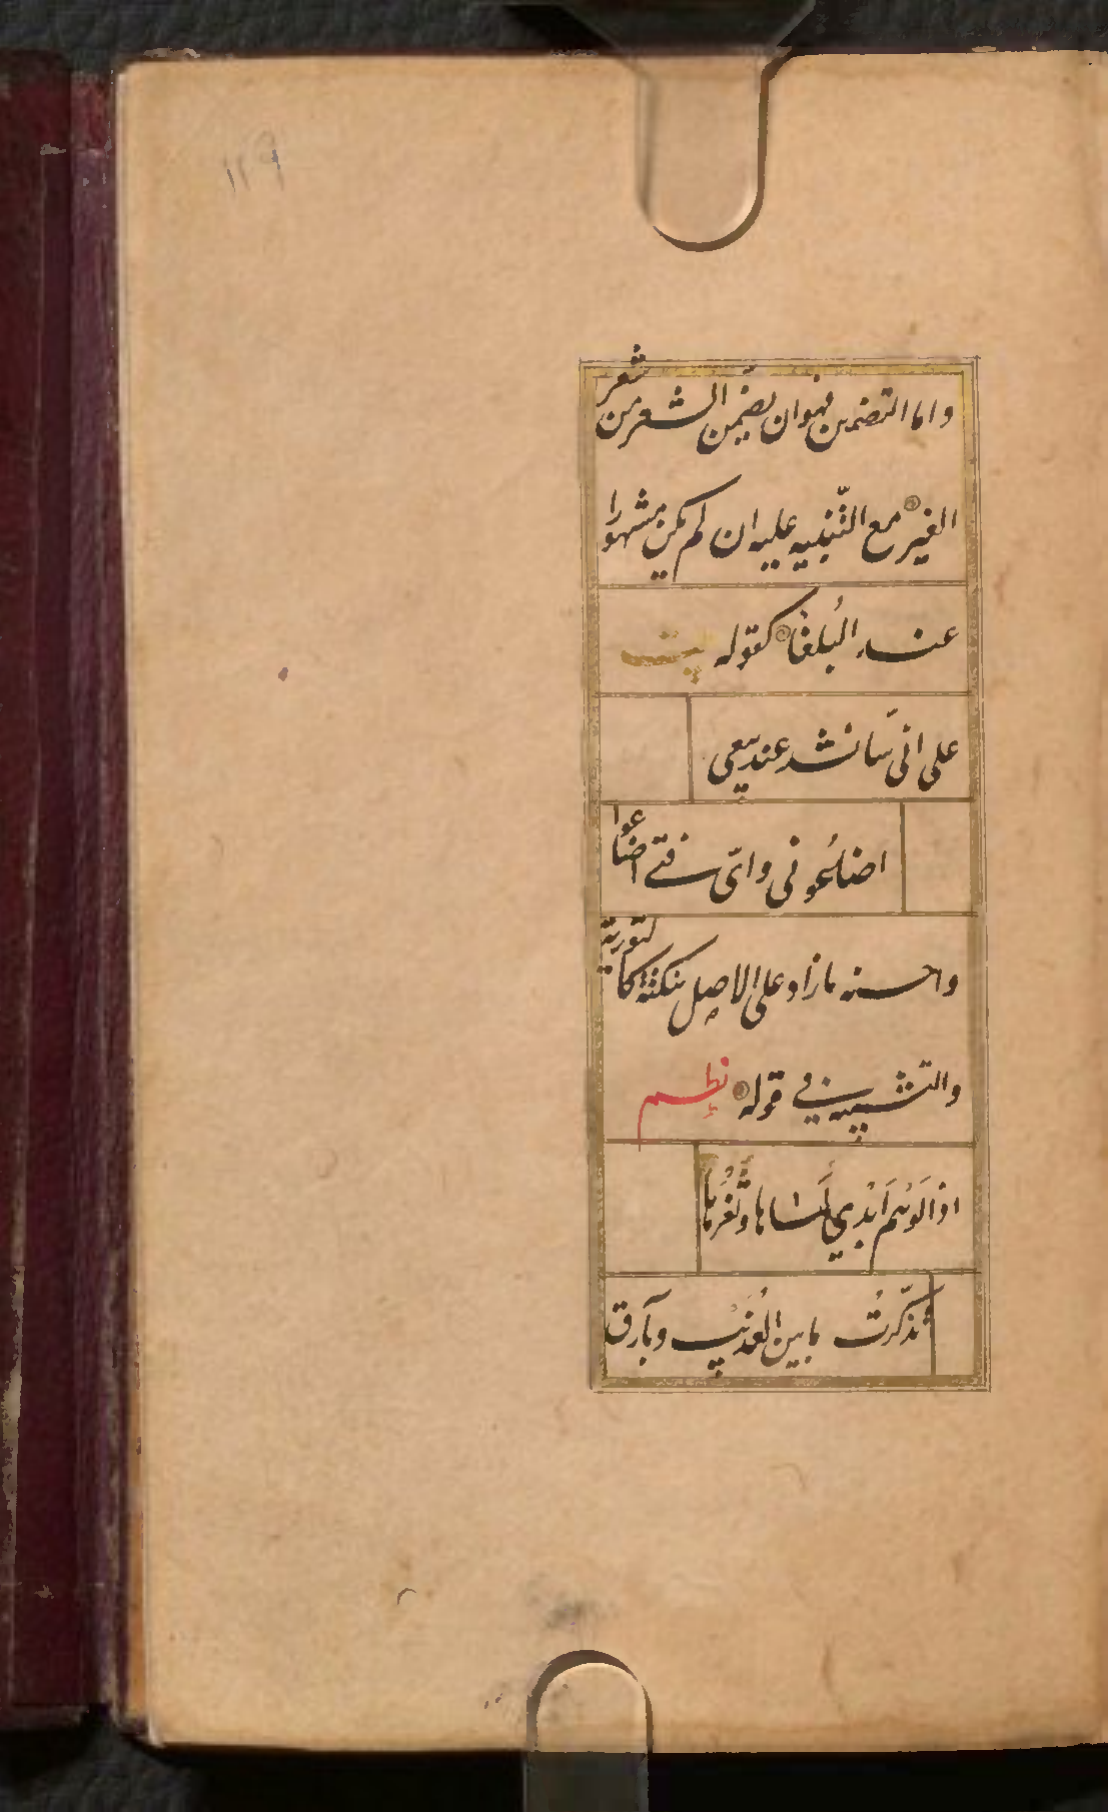 ١٢٩
واما التضمين فهو ان يضمّن الشعر من شعر
الغير مع التّنبيه عليه ان لم يكن مشهورا
عند البُلغَا كقوله بيت
على انى سَانشد عند بيعى
اضاعُونى واىّ فتى اضاعوا
واحسنه ما زاد على الاصل بنكتة كالتورية
والتشبيه فى قوله نظم
اذا الوَهْم اَبْدي لى لَمَاها وثَغْرُها
تذكّرتُ ما بين العُذَيْب وبارق